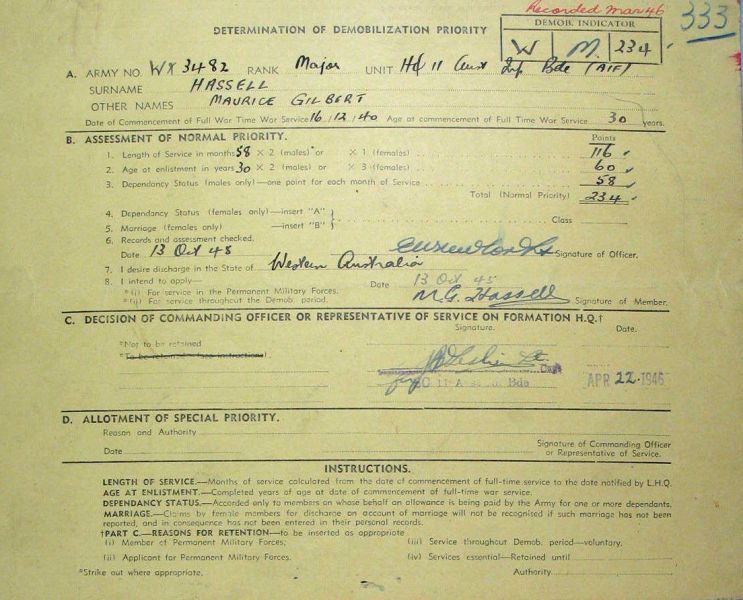 Recorded Mar 46
333
DETERMINATION OF DEMOBILIZATION PRIORITY
DEMOB. INDICATOR
W M. 234
A. ARMY NO. WX 3482 RANK Major UNIT HQ 11 Aust Inf Bde (AIF)
SURNAME HASSELL
OTHER NAMES MAURICE GILBERT
Date of Commencement of Full War Time War Service 16/12/40 Age at commencement of Full Time War Service 30 years.
B. ASSESSMENT OF NORMAL PRIORITY. Points
1. Length of Service in months 58 × 2 (males) or × 1 (females) 116
2. Age at enlistment in years 30 × 2 (males) or × 3 (females) 60
3. Dependancy Status (males only)—one point for each month of Service 58
Total (Normal Priority) 234
4. Dependancy Status (females only)—insert "A" } Class
5. Marriage (females only) —insert "B" }
6. Records and assessment checked.
Date 13 Oct 45 Signature of Officer.
7. I desire discharge in the State of Western Australia
8. I intend to apply— Date 13 Oct 45
*(i) For service in the Permanent Military Forces.
*(ii) For service throughout the Demob. period. M.G. Hassell Signature of Member.
C. DECISION OF COMMANDING OFFICER OR REPRESENTATIVE OF SERVICE ON FORMATION H.Q.†
Signature. Date.
*Not to be retained
*To be retained (see instructions)
Capt
11 Bde APR 22 1946
D. ALLOTMENT OF SPECIAL PRIORITY.
Reason and Authority
Date Signature of Commanding Officer
or Representative of Service.
INSTRUCTIONS.
LENGTH OF SERVICE.—Months of service calculated from the date of commencement of full-time service to the date notified by L.H.Q.
AGE AT ENLISTMENT.—Completed years of age at date of commencement of full-time war service.
DEPENDANCY STATUS.—Accorded only to members on whose behalf an allowance is being paid by the Army for one or more dependants.
MARRIAGE.—Claims by female members for discharge on account of marriage will not be recognised if such marriage has not been
reported, and in consequence has not been entered in their personal records.
†PART C.—REASONS FOR RETENTION—to be inserted as appropriate
(i) Member of Permanent Military Forces. (iii) Service throughout Demob. period—voluntary.
(ii) Applicant for Permanent Military Forces. (iv) Services essential—Retained until
*Strike out where appropriate. Authority